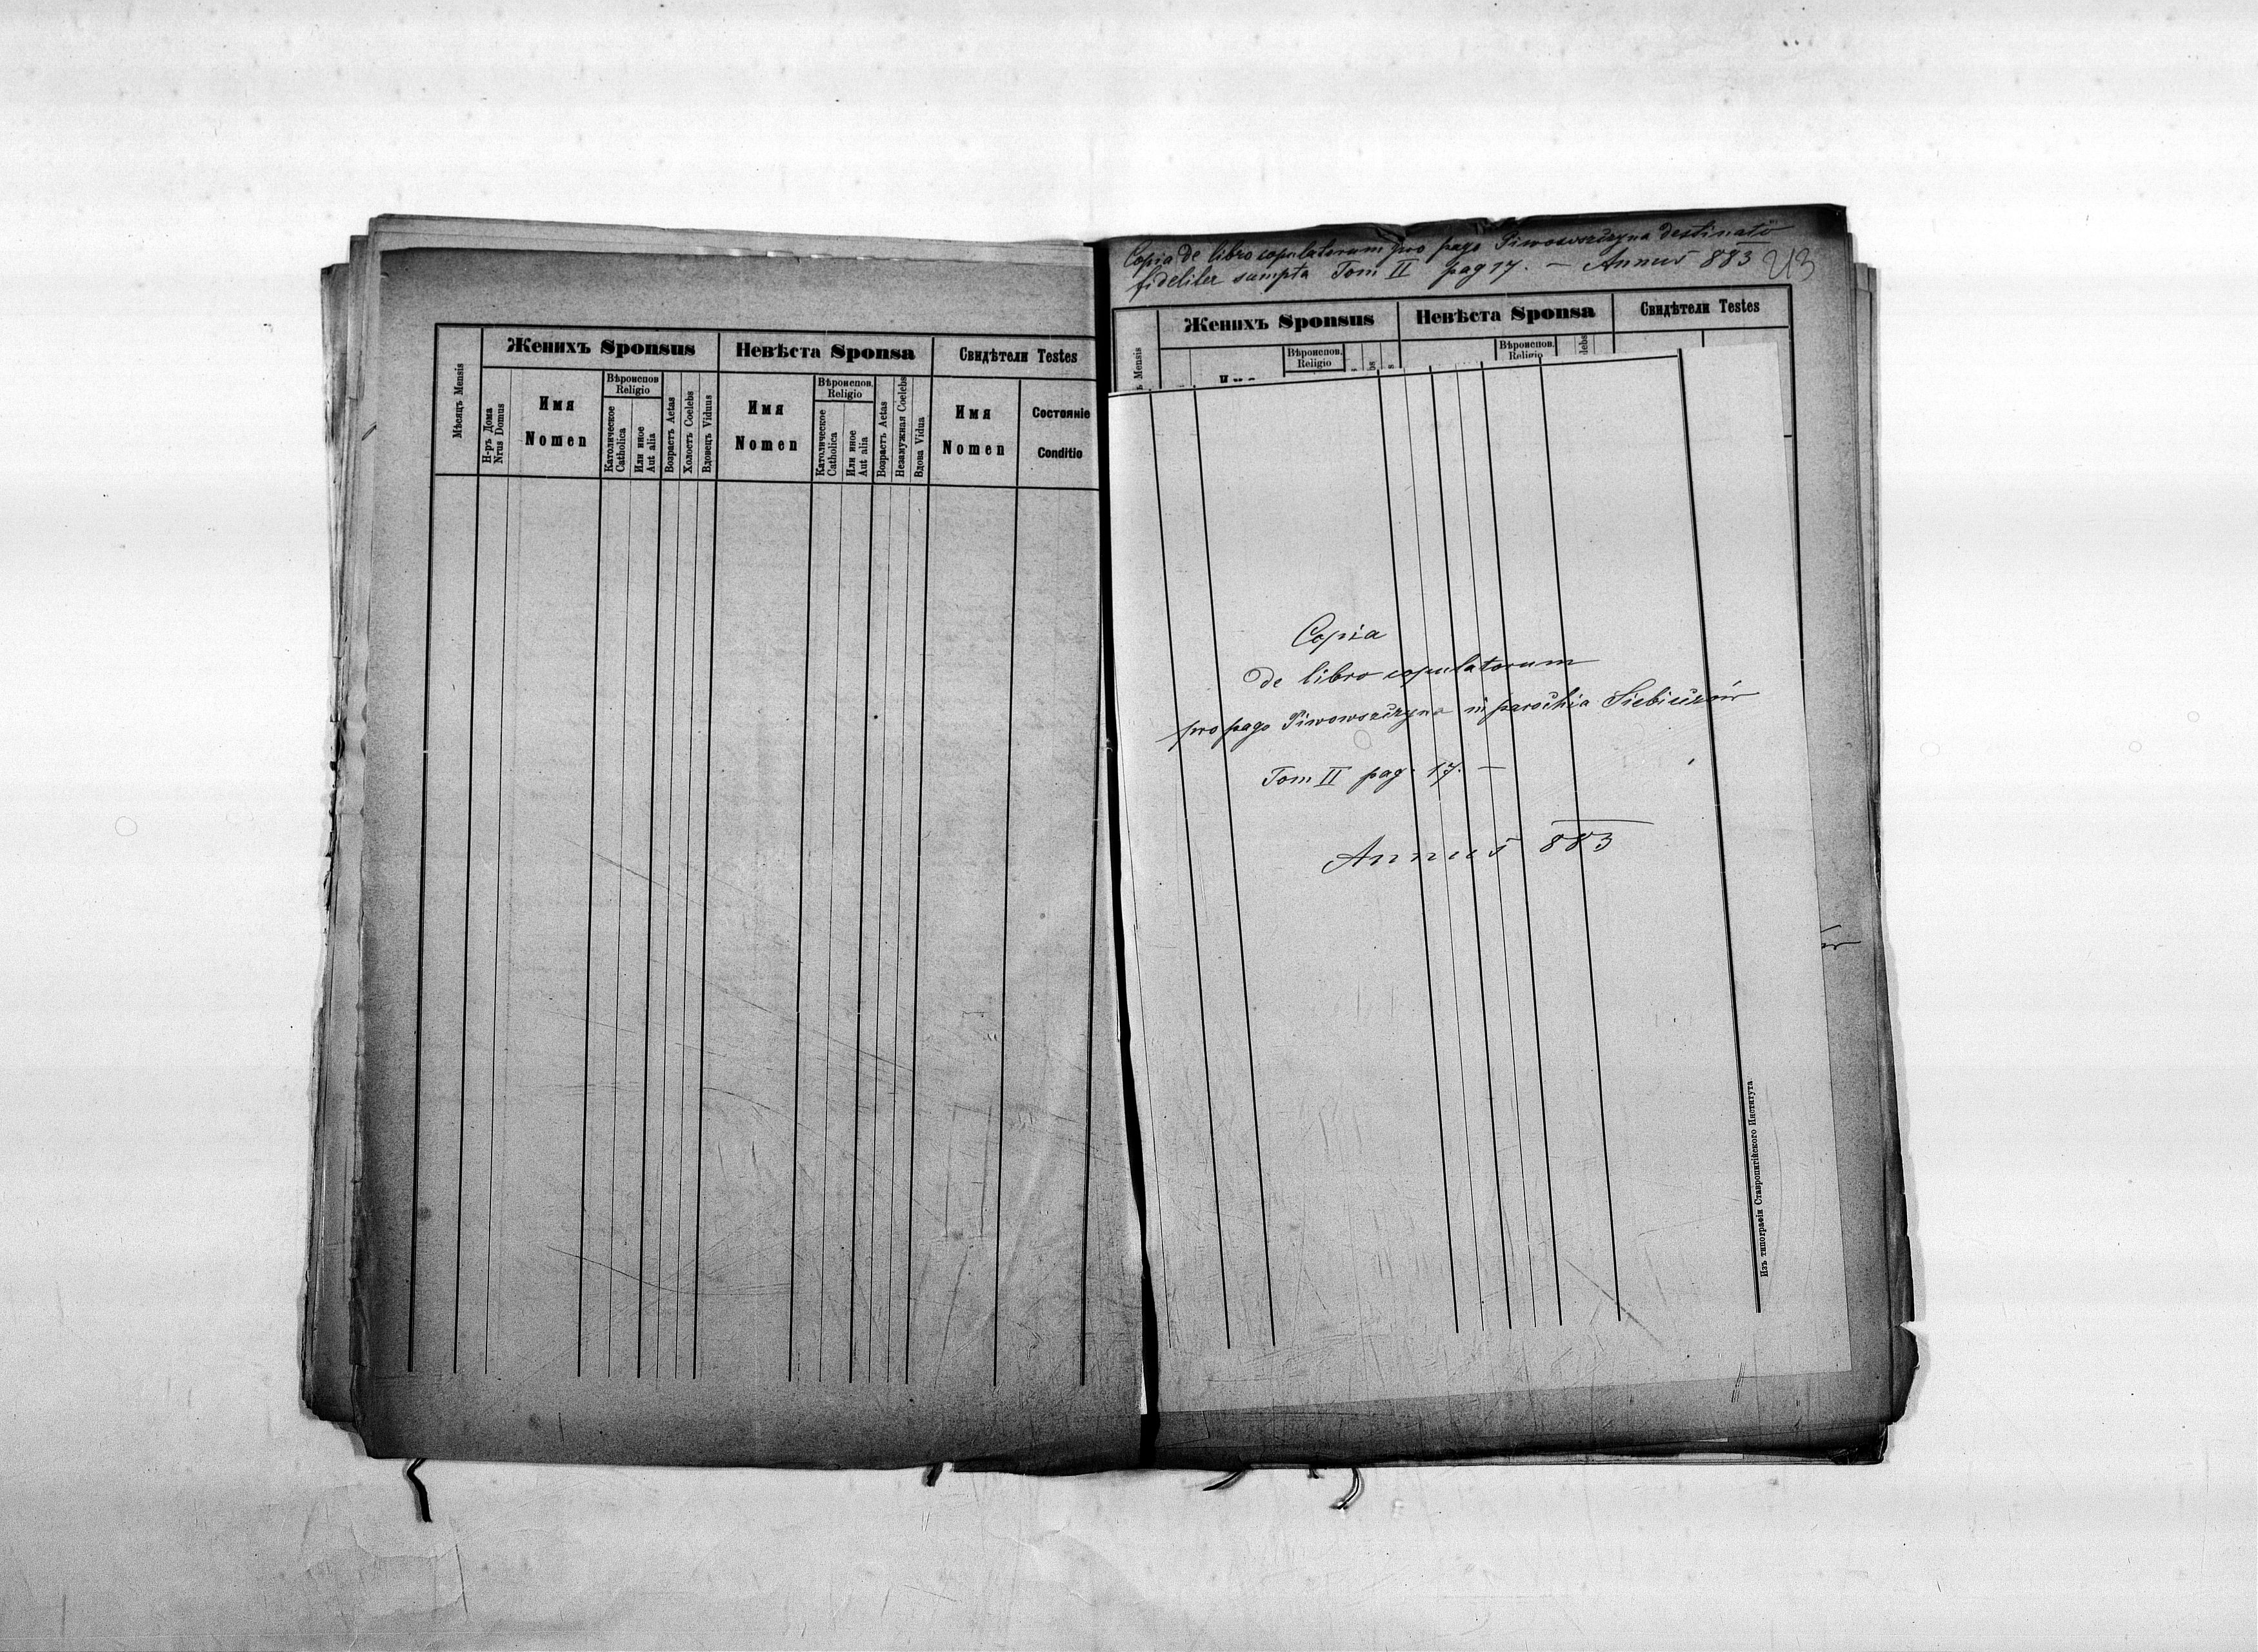 Женихъ Sponsus
Невѣста Sponsa
Свидѣтели Testes
Мѣсяцъ Mensis
Н-ръ Дома
Nrus Domus
Имя
Nomen
Вѣроиспов.
Religio
Католическое
Catholica
Или иное
Aut alia
Возрастъ Aetas
Холостъ Coelebs
Вдовецъ Viduus
Имя
Nomen
Вѣроиспов.
Religio
Католическое
Catholica
Или иное
Aut alia
Возрастъ Aetas
Незамужная Coelebs
Вдова Vidua
Имя
Nomen
Состояніе
Conditio
Copia de libro copulatorum pro pago Piwowszczyna destinato
fideliter sumpta Tom II pag 17. – Annus 883
213
Женихъ Sponsus
Невѣста Sponsa
Свидѣтели Testes
Mensis
Вѣроиспов.
Religio
Вѣроиспов.
Religio
Copia
de libro copulatorum
pro pago Piwowszczyna in parochia
Tom II pag. 17. –
Annus 883
Изъ типографіи Ставропигійского Института